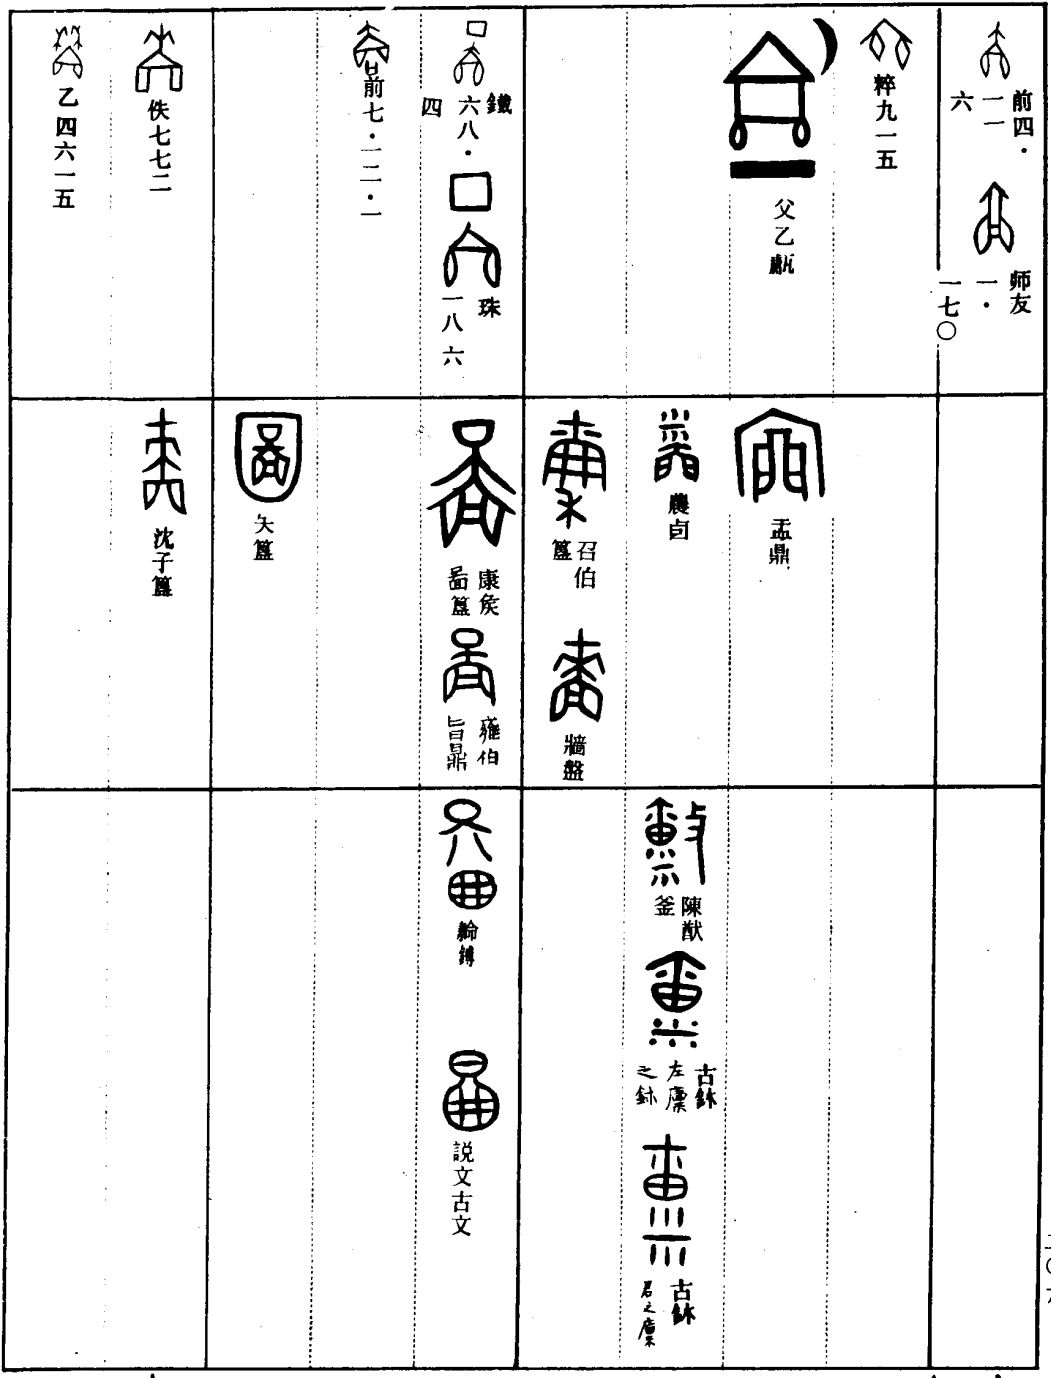 前四·
一一
六
师友
一·
一七〇
粹九一五
父乙甗
鐵
六八·
四
珠
一八六
前七·一二·一
佚七七二
乙四六一五
盂鼎
農卣
召伯
簋
牆盤
康矦
啚簋
雍伯
旨鼎
夨簋
沈子簋
陳猷
釜
古鉥
左廩
之鉥
古鉥
君之廩
鎛
説文古文
二〇